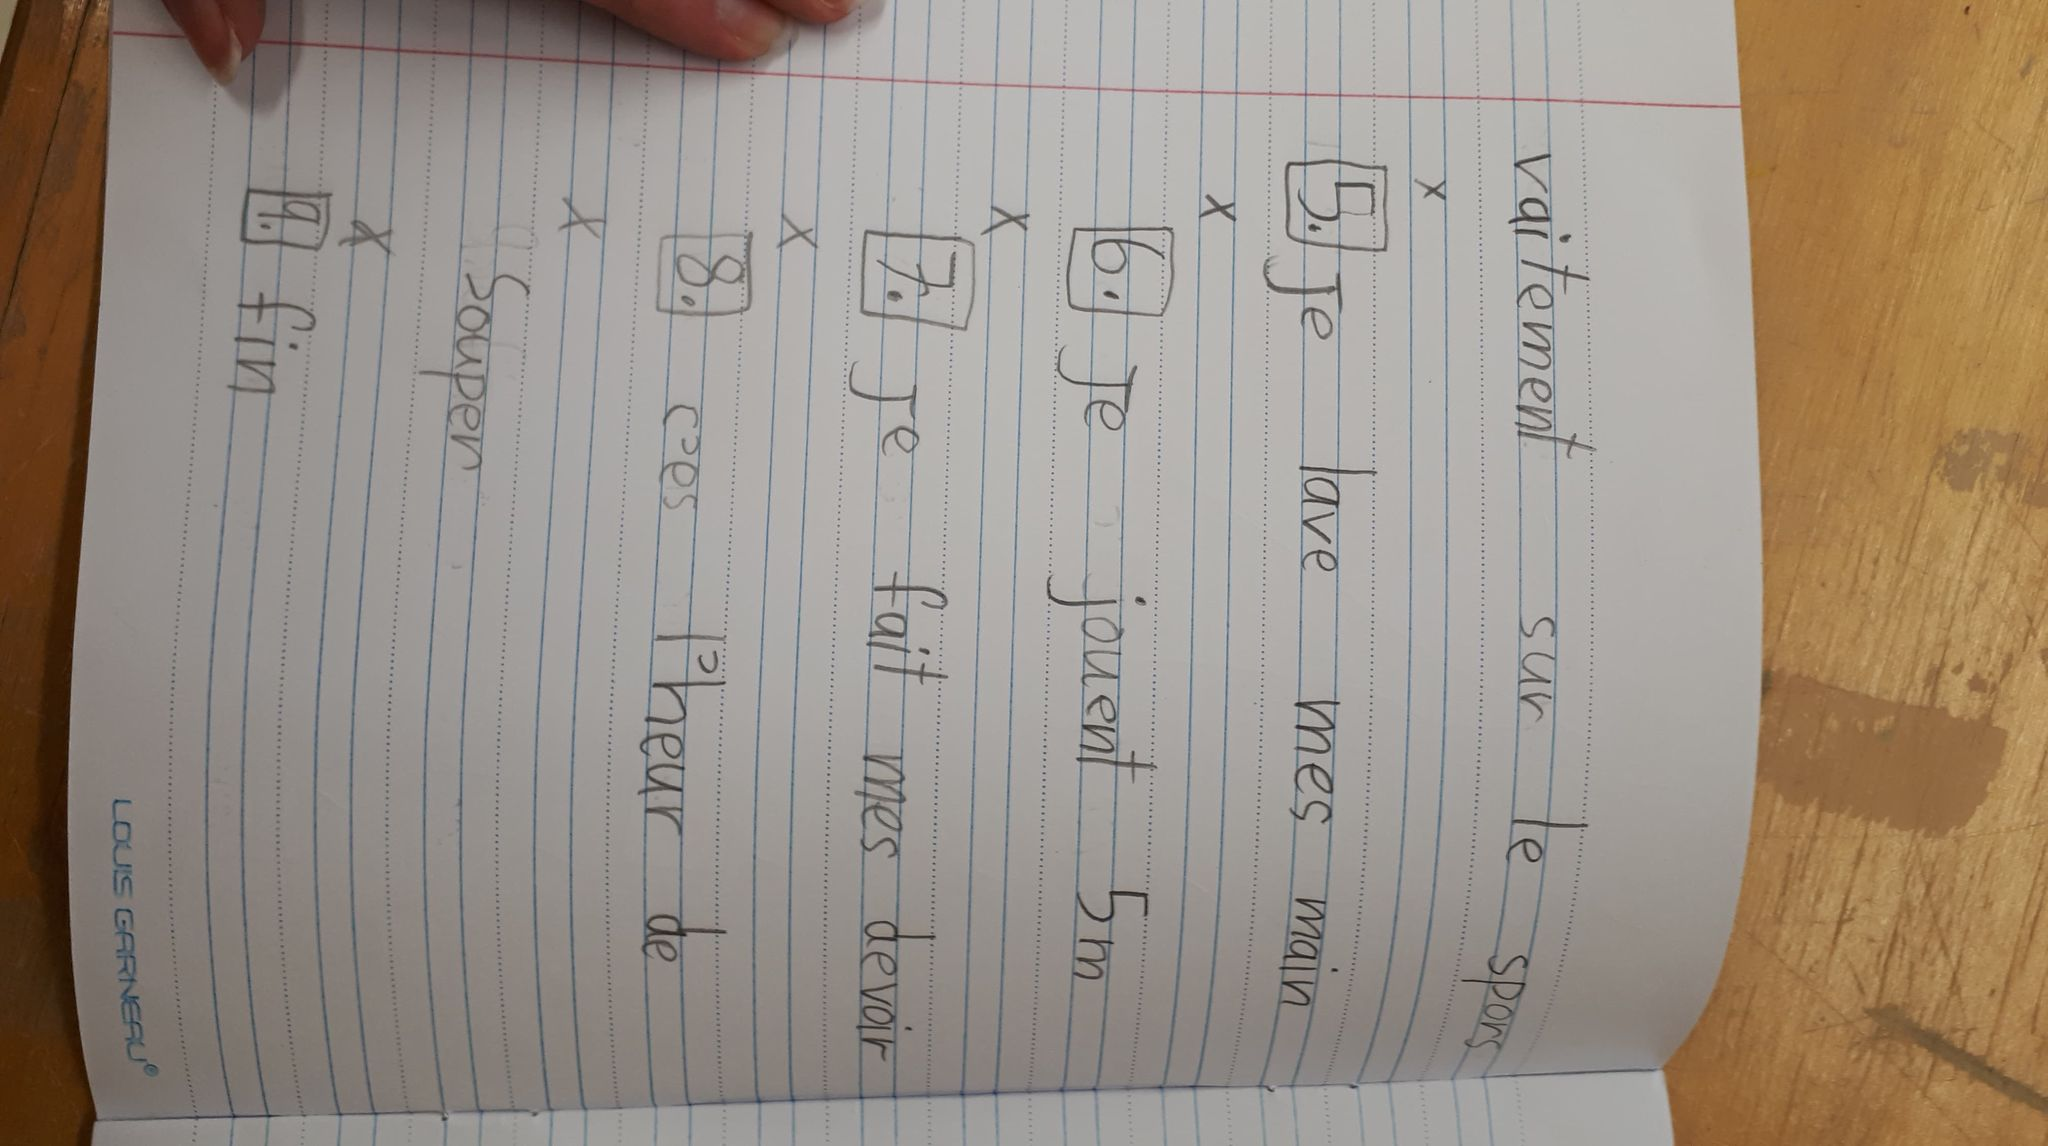 vaitement sur le spors
x
5. Je lave mes main
x
6. Je jouent 5m
x
7. Je fait mes devoir
x
8. c'es l'heur de
x
Souper
x
9. fin
LOUIS GARNEAU®